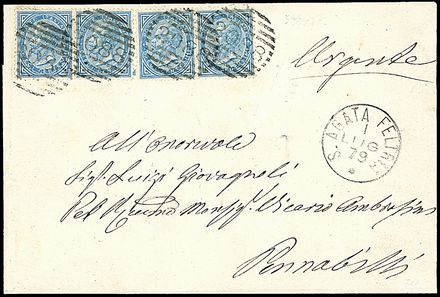 Urgente
S. AGATA FELTRIA
1
LUG
79
All'Onorevole
Sig.r Luigi Giovagnoli
Pel Monsig.r Vicario
Pennabilli